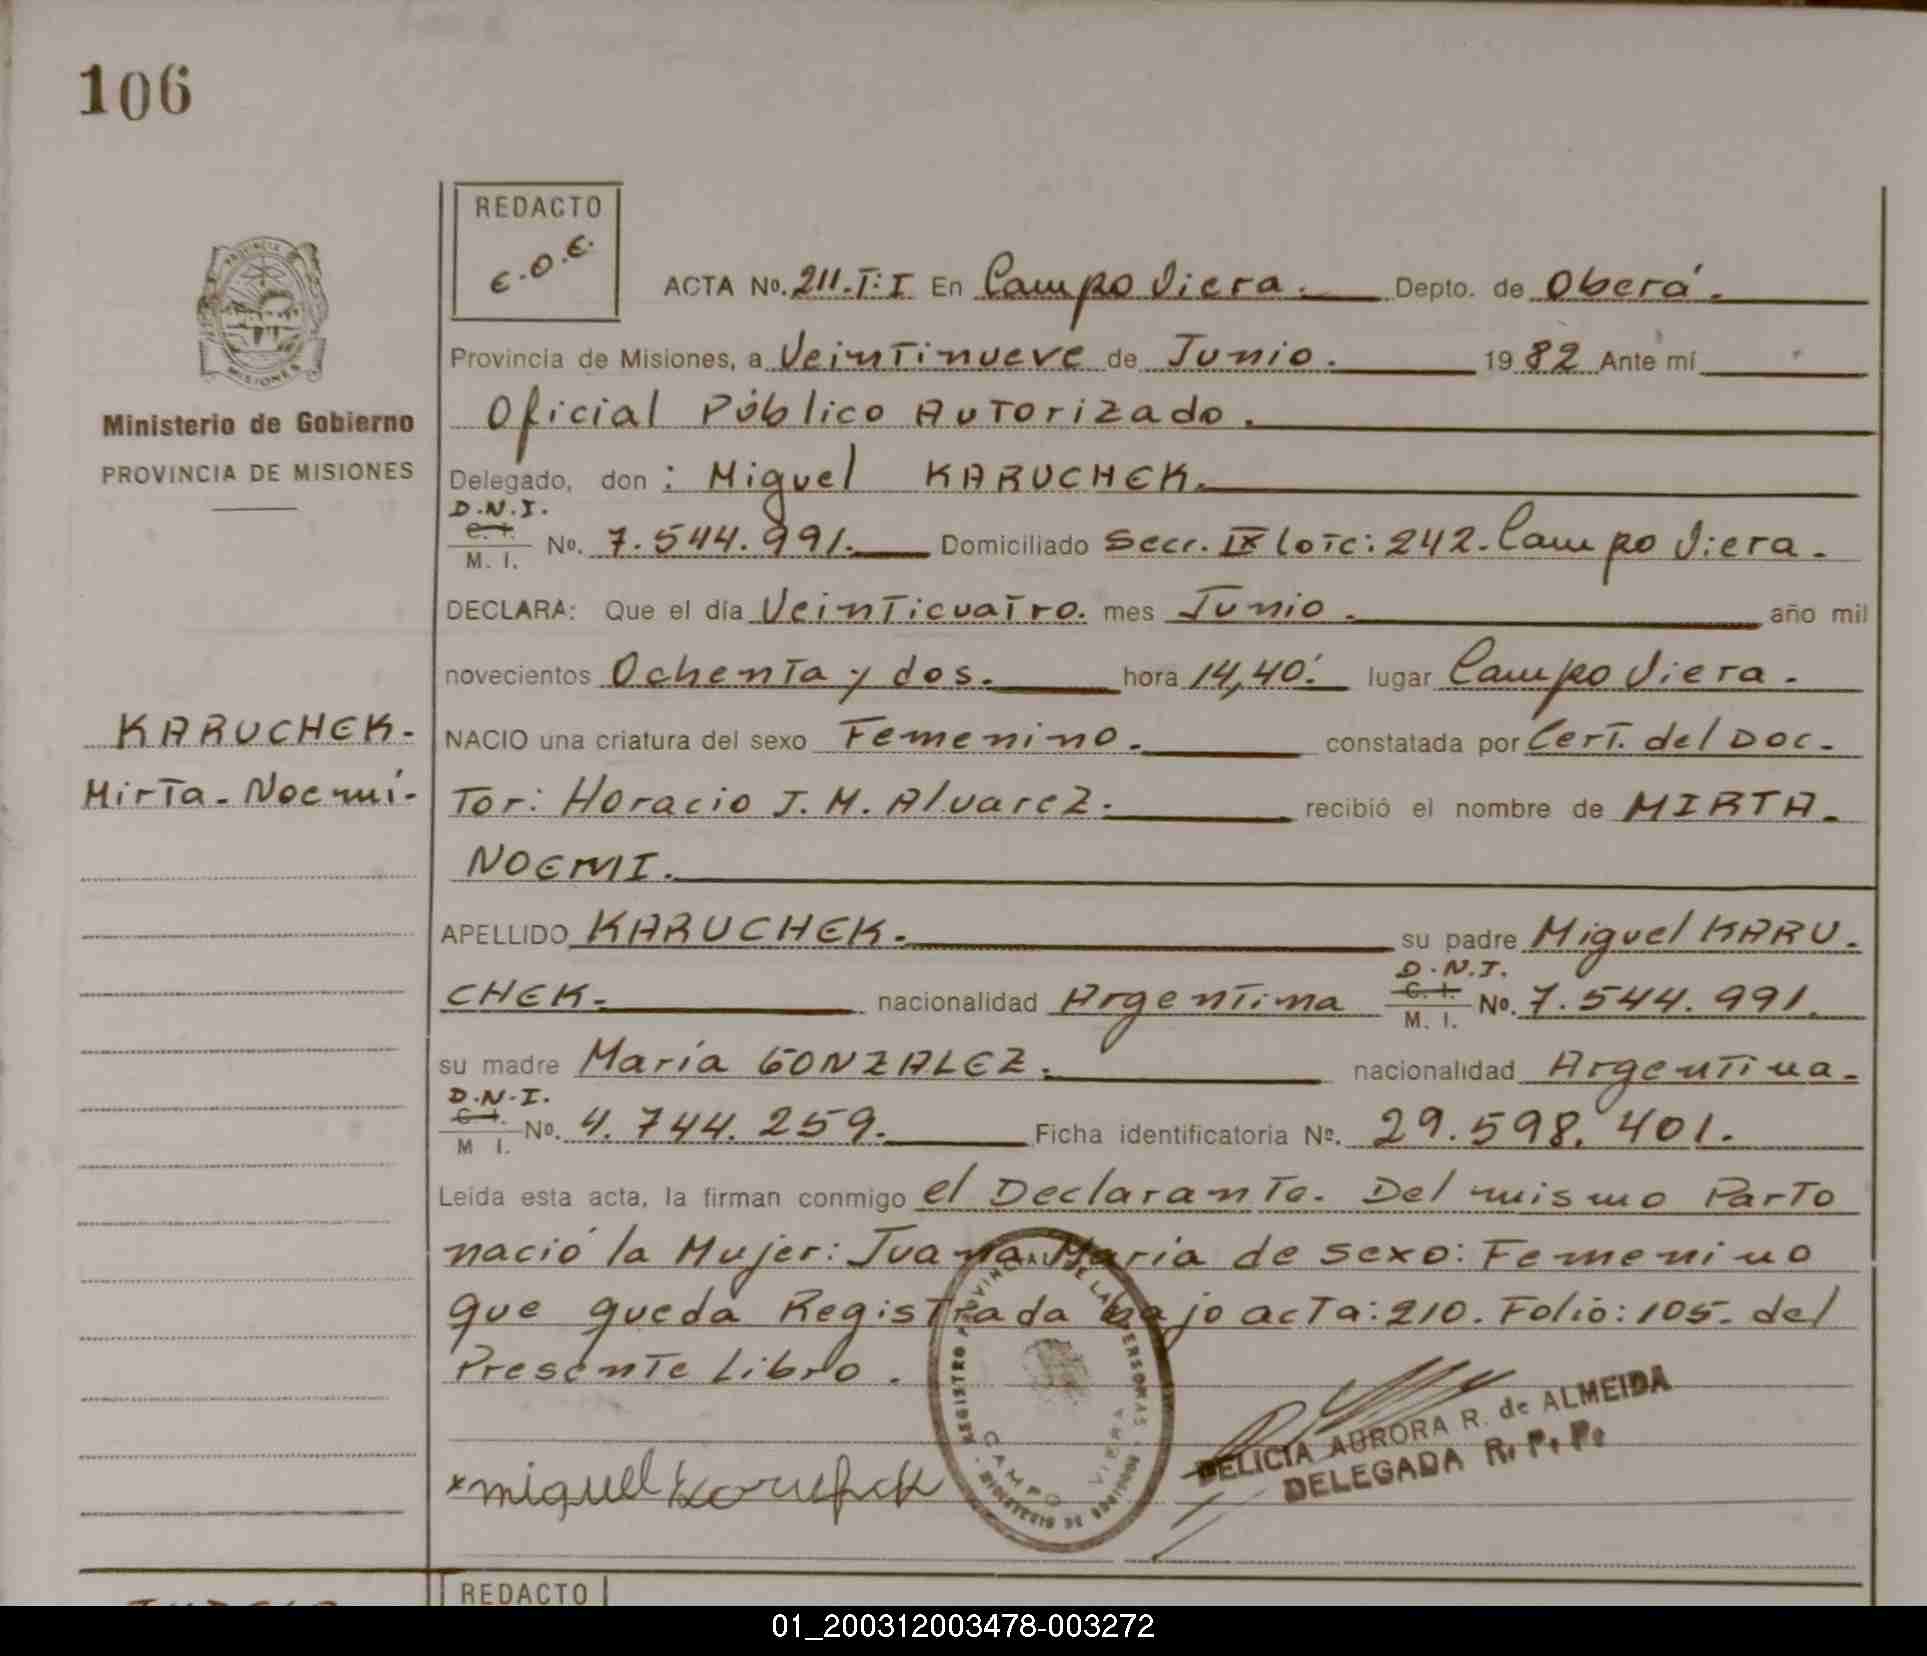 106
REDACTO
E.O.E.
ACTA No. 211.T:I En Campo Viera. Depto. de Oberá.
Provincia de Misiones, a Veintinueve de Junio. 1982 Ante mí
Oficial Público Autorizado.
Ministerio de Gobierno
PROVINCIA DE MISIONES
Delegado, don: Miguel KARUCHEK.
D.N.I.
C. I.
M. I. No. 7.544.991. Domiciliado Secc. IX Lote: 242. Campo Viera.
DECLARA: Que el día Veinticuatro. mes Junio. año mil
novecientos Ochenta y dos. hora 14,40'. lugar Campo Viera.
KARUCHEK.
Mirta. Noemí.
NACIO una criatura del sexo Femenino. constatada por Cert. del Doc.
Tor: Horacio J. M. Alvarez. recibió el nombre de MIRTA.
NOEMI.
APELLIDO KARUCHEK. su padre Miguel KARU.
D.N.I.
CHEK. nacionalidad Argentina C. I. M. I. No. 7.544.991.
su madre María GONZALEZ. nacionalidad Argentina.
D.N.I.
C. I.
M I. No. 4.744.259. Ficha identificatoria Nº. 29.598.401.
Leída esta acta, la firman conmigo el Declarante. Del mismo Parto
nació la Mujer: Juana Maria de sexo: Femenino
que queda Registrada bajo acta: 210. Folio: 105. del
Presente Libro.
REGISTRO PROVINCIAL DE LAS PERSONAS
CAMPO VIERA
MINISTERIO DE GOBIERNO
DELICIA AURORA R. de ALMEIDA
DELEGADA R. P. P.
x miguel Karuchek
REDACTO
01_200312003478-003272